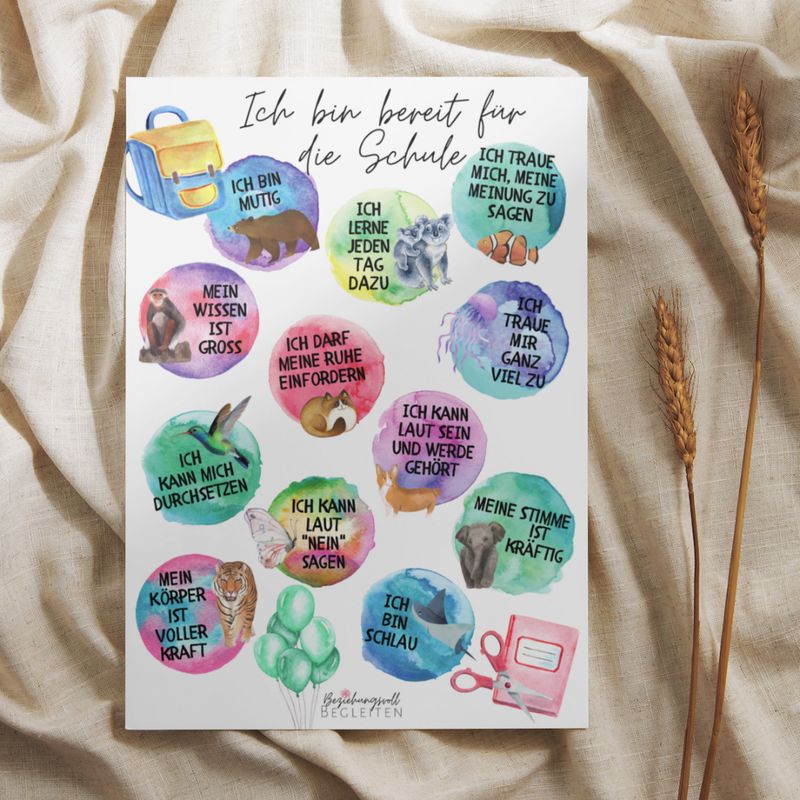 Ich bin bereit für
die Schule
ICH BIN
MUTIG
ICH
LERNE
JEDEN
TAG
DAZU
ICH TRAUE
MICH, MEINE
MEINUNG ZU
SAGEN
MEIN
WISSEN
IST
GROSS
ICH DARF
MEINE RUHE
EINFORDERN
ICH
TRAUE
MIR
GANZ
VIEL ZU
ICH
KANN MICH
DURCHSETZEN
ICH KANN
LAUT SEIN
UND WERDE
GEHÖRT
ICH KANN
LAUT
"NEIN"
SAGEN
MEINE STIMME
IST
KRÄFTIG
MEIN
KÖRPER
IST
VOLLER
KRAFT
ICH
BIN
SCHLAU
Beziehungsvoll
BEGLEITEN